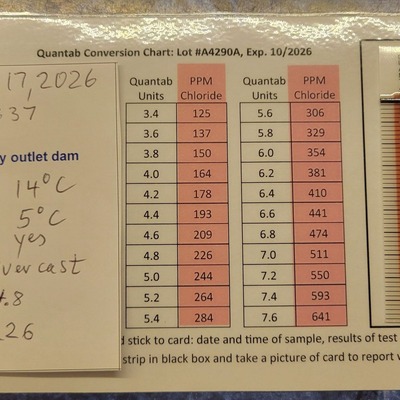 Quantab Conversion Chart: Lot #A4290A, Exp. 10/2026
17, 2026
37
y outlet dam
14°C
5°C
yes
vercast
4.8
226
Quantab Units PPM Chloride Quantab Units PPM Chloride
3.4 125 5.6 306
3.6 137 5.8 329
3.8 150 6.0 354
4.0 164 6.2 381
4.2 178 6.4 410
4.4 193 6.6 441
4.6 209 6.8 474
4.8 226 7.0 511
5.0 244 7.2 550
5.2 264 7.4 593
5.4 284 7.6 641
d stick to card: date and time of sample, results of test
strip in black box and take a picture of card to report